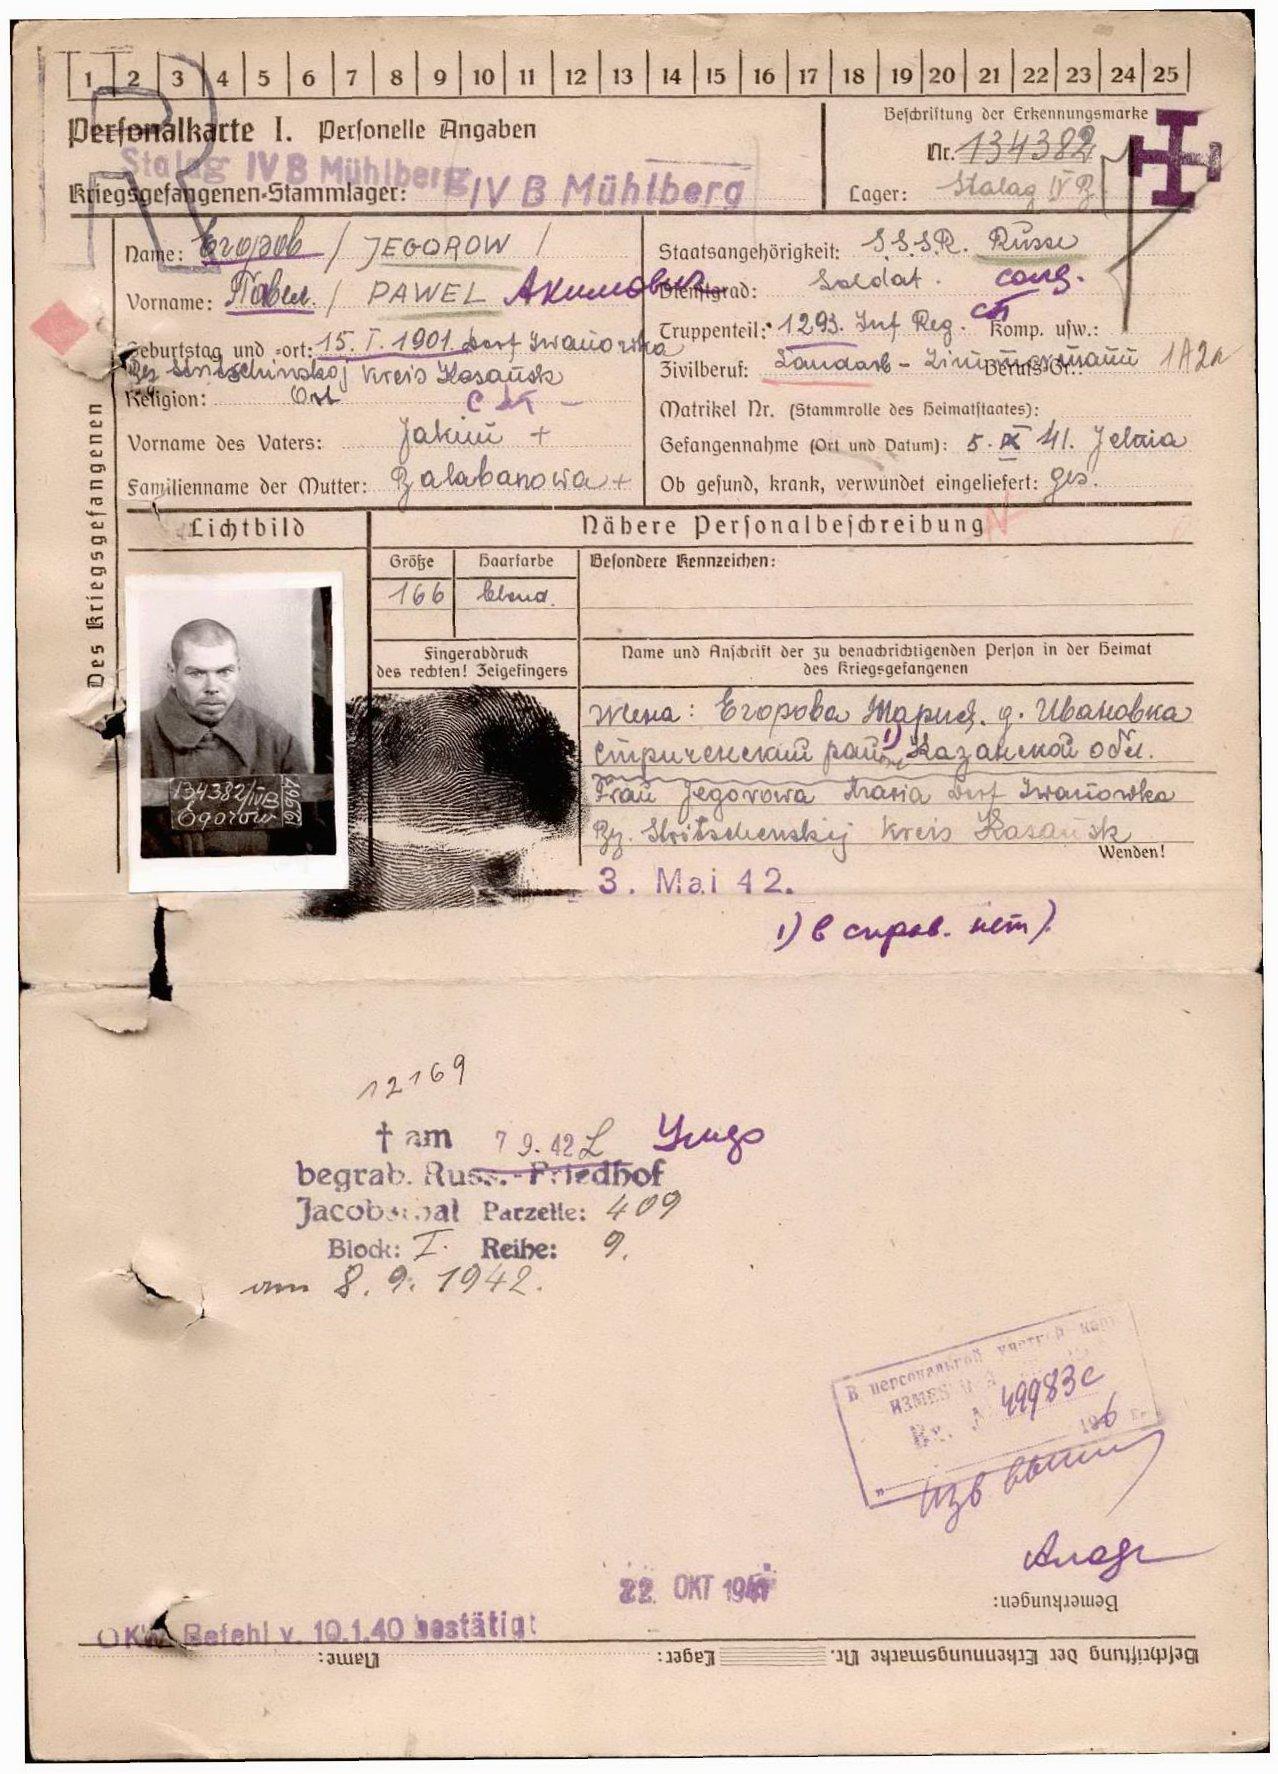 1 2 3 4 5 6 7 8 9 10 11 12 13 14 15 16 17 18 19 20 21 22 23 24 25
R
Personalkarte I. Personelle Angaben
Beschriftung der Erkennungsmarke
Nr. 134382
Stalag IV B Mühlberg
Kriegsgefangenen-Stammlager: IV B Mühlberg
Lager: Stalag IV B
Des Kriegsgefangenen
Name: Егоров / JEGOROW /
Vorname: Павел. / PAWEL Акимович
Geburtstag und -ort: 15. I. 1901. Dorf Iwanowka
Bez. Kreis Kasańsk
Religion: Ort
Vorname des Vaters: Jakim +
Familienname der Mutter: Balabanowa +
Staatsangehörigkeit: S.S.S.R. Russe
Dienstgrad: Soldat. солд.
Truppenteil: 1293. Inf Reg. сп Komp. usw.:
Zivilberuf: Landarb - Zimmermann Berufs-Gr.: 1A2a
Matrikel Nr. (Stammrolle des Heimatstaates):
Gefangennahme (Ort und Datum): 5. IX 41. Jelnia
Ob gesund, krank, verwundet eingeliefert: ges.
Lichtbild
Nähere Personalbeschreibung
Größe Haarfarbe Besondere Kennzeichen:
166 blond.
Fingerabdruck
des rechten! Zeigefingers
Name und Anschrift der zu benachrichtigenden Person in der Heimat
des Kriegsgefangenen
134382/IVB
Egorow
жена: Егорова Мария. д. Ивановка
Стриченский район 1) Казанской обл.
Frau Jegorowa Maria Dorf Iwanowka
Bz. Stritschenskij Kreis Kasańsk
Wenden!
3. Mai 42.
1) в справ. нет).
12169
† am 7 9. 42
begrab. Russ.-Friedhof
Jacobsthal Parzelle: 409
Block: I. Reihe: 9.
am 8. 9. 1942.
В персональной учетной карт
Вх. № 49983с
196 г.
22. OKT 1941
Bemerkungen:
OKW Befehl v. 10.1.40 bestätigt
Beschriftung der Erkennungsmarke Nr. Lager: Name: